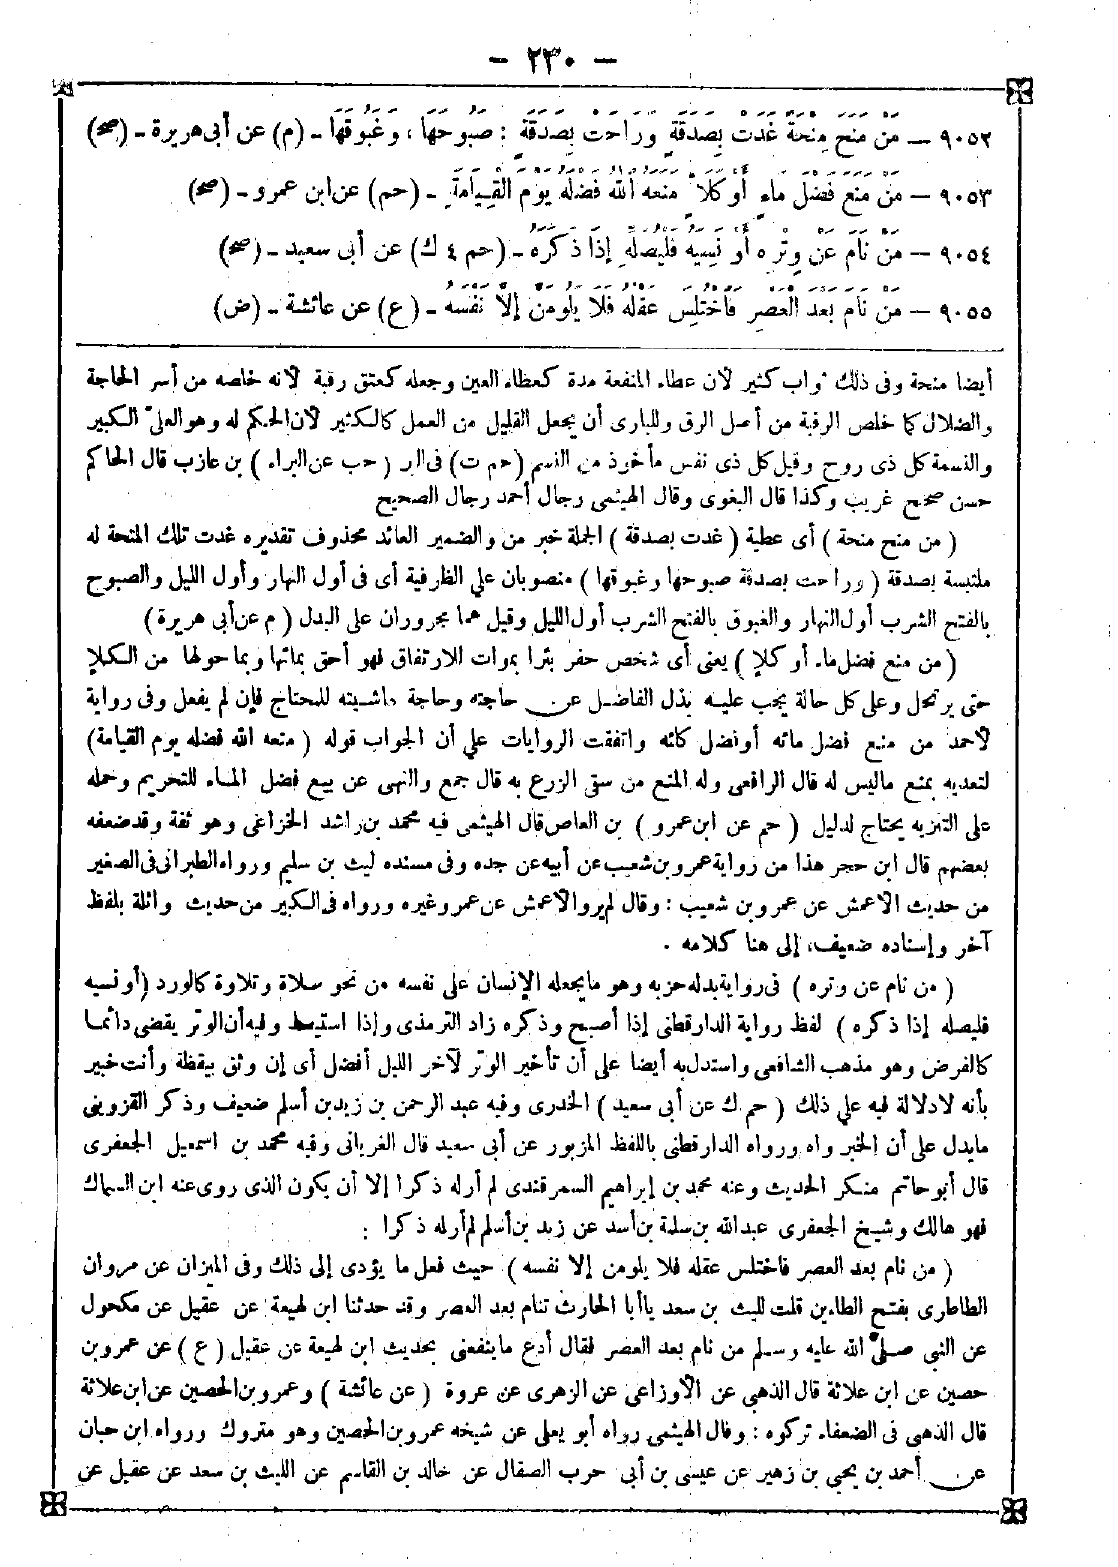 - ٢٣٠ -
٩٠٥٢ - مَنْ مَنَحَ مِنْحَةً غَدَتْ بِصَدَقَةٍ وَرَاحَتْ بِصَدَقَةٍ : صَبُوحَهَا ، وَغَبُوقَهَا - (م) عن أبى هريرة - (صح)
٩٠٥٣ - مَنْ مَنَعَ فَضْلَ مَاءٍ أَوْ كَلَأٍ مَنَعَهُ اللهُ فَضْلَهُ يَوْمَ الْقِيَامَةِ - (حم) عن ابن عمرو - (صح)
٩٠٥٤ - مَنْ نَامَ عَنْ وِتْرِهِ أَوْ نَسِيَهُ فَلْيُصَلِّهِ إِذَا ذَكَرَهُ - (حم ٤ ك) عن أبى سعيد - (صح)
٩٠٥٥ - مَنْ نَامَ بَعْدَ الْعَصْرِ فَاخْتُلِسَ عَقْلُهُ فَلَا يَلُومَنَّ إِلَّا نَفْسَهُ - (ع) عن عائشة - (ض)
أيضا منحة وفى ذلك ثواب كثير لان عطاء المنفعة مدة كعطاء العين وجعله كعتق رقبة لانه خلصه من أسر الحاجة
والضلال كما خلص الرقبة من أصل الرق وللبارى أن يجعل القليل من العمل كالكثير لأن الحكم له وهو العلىّ الكبير
والنسمة كل ذى روح وقيل كل ذى نفس مأخوذ من النسم (حم ت) فى البر (حب عن البراء) بن عازب قال الحاكم
حسن صحيح غريب وكذا قال البغوى وقال الهيثمى رجال أحمد رجال الصحيح
(من منح منحة) أى عطية (غدت بصدقة) الجملة خبر من والضمير العائد محذوف تقديره غدت تلك المنحة له
ملتبسة بصدقة (وراحت بصدقة صبوحها وغبوقها) منصوبان على الظرفية أى فى أول النهار وأول الليل والصبوح
بالفتح الشرب أول النهار والغبوق بالفتح الشرب أول الليل وقيل هما مجروران على البدل (م عن أبى هريرة)
(من منع فضل ماء أو كلإ) يعنى أى شخص حفر بئرا بموات للارتفاق فهو أحق بمائها وبما حولها من الكلإ
حتى يرتحل وعلى كل حالة يجب عليه بذل الفاضل عن حاجته وحاجة ماشيته للمحتاج فإن لم يفعل وفى رواية
لأحمد من منع فضل مائه أو فضل كلئه واتفقت الروايات على أن الجواب قوله (منعه الله فضله يوم القيامة)
لتعديه بمنع ماليس له قال الرافعى وله المنع من سقى الزرع به قال جمع والنهى عن بيع فضل الماء للتحريم وحمله
على التنزيه يحتاج لدليل (حم عن ابن عمرو) بن العاص قال الهيثمى فيه محمد بن راشد الخزاعى وهو ثقة وقد ضعفه
بعضهم قال ابن حجر هذا من رواية عمرو بن شعيب عن أبيه عن جده وفى مسنده ليث بن سليم ورواه الطبرانى فى الصغير
من حديث الأعمش عن عمرو بن شعيب : وقال لم يرو الأعمش عن عمرو غيره ورواه فى الكبير من حديث واثلة بلفظ
آخر وإسناده ضعيف، إلى هنا كلامه .
(من نام عن وتره) فى رواية بدله حزبه وهو ما يجعله الإنسان على نفسه من نحو صلاة وتلاوة كالورد (أو نسيه
فليصله إذا ذكره) لفظ رواية الدارقطنى إذا أصبح وذكره زاد الترمذى وإذا استيقظ وفيه أن الوتر يقضى دائما
كالفرض وهو مذهب الشافعى واستدل به أيضا على أن تأخير الوتر لآخر الليل أفضل أى إن وثق بيقظة وأنت خبير
بأنه لا دلالة فيه على ذلك (حم ك عن أبى سعيد) الخدرى وفيه عبد الرحمن بن زيد بن أسلم ضعيف وذكر القزوينى
ما يدل على أن الخبر واه ورواه الدارقطنى باللفظ المزبور عن أبى سعيد قال الغريانى وفيه محمد بن اسمعيل الجعفرى
قال أبو حاتم منكر الحديث وعنه محمد بن إبراهيم السمرقندى لم أر له ذكرا إلا أن يكون الذى روى عنه ابن السماك
فهو هالك وشيخ الجعفرى عبدالله بن سلمة بن أسد عن زيد بن أسلم لم أر له ذكرا :
(من نام بعد العصر فاختلس عقله فلا يلومن إلا نفسه) حيث فعل ما يؤدى إلى ذلك وفى الميزان عن مروان
الطاطرى بفتح الطاءين قلت لليث بن سعد يا أبا الحارث تنام بعد العصر وقد حدثنا ابن لهيعة عن عقيل عن مكحول
عن النبى صلى الله عليه وسلم من نام بعد العصر فقال أدع ما ينفعنى بحديث ابن لهيعة عن عقيل (ع) عن عمرو بن
حصين عن ابن علاثة قال الذهبى عن الأوزاعى عن الزهرى عن عروة (عن عائشة) وعمرو بن الحصين عن ابن علاثة
قال الذهبى فى الضعفاء تركوه : وقال الهيثمى رواه أبو يعلى عن شيخه عمرو بن الحصين وهو متروك ورواه ابن حبان
عن أحمد بن يحيى بن زهير عن عيسى بن أبى حرب الصفال عن خالد بن القاسم عن الليث بن سعد عن عقيل عن